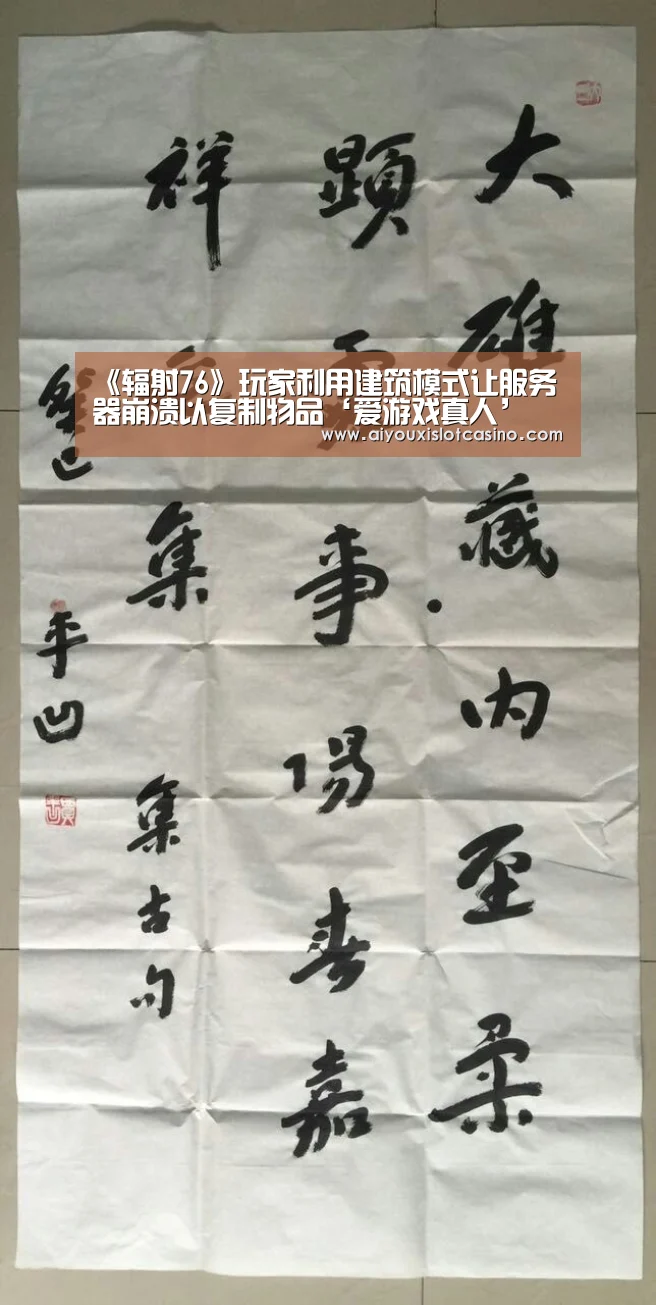 《辐射76》玩家利用建筑模式让服务
器崩溃以复制物品‘爱游戏真人’
www.aiyouxislotcasino.com
大雄藏内至柔
顕事春嘉
祥集集古句
平凹